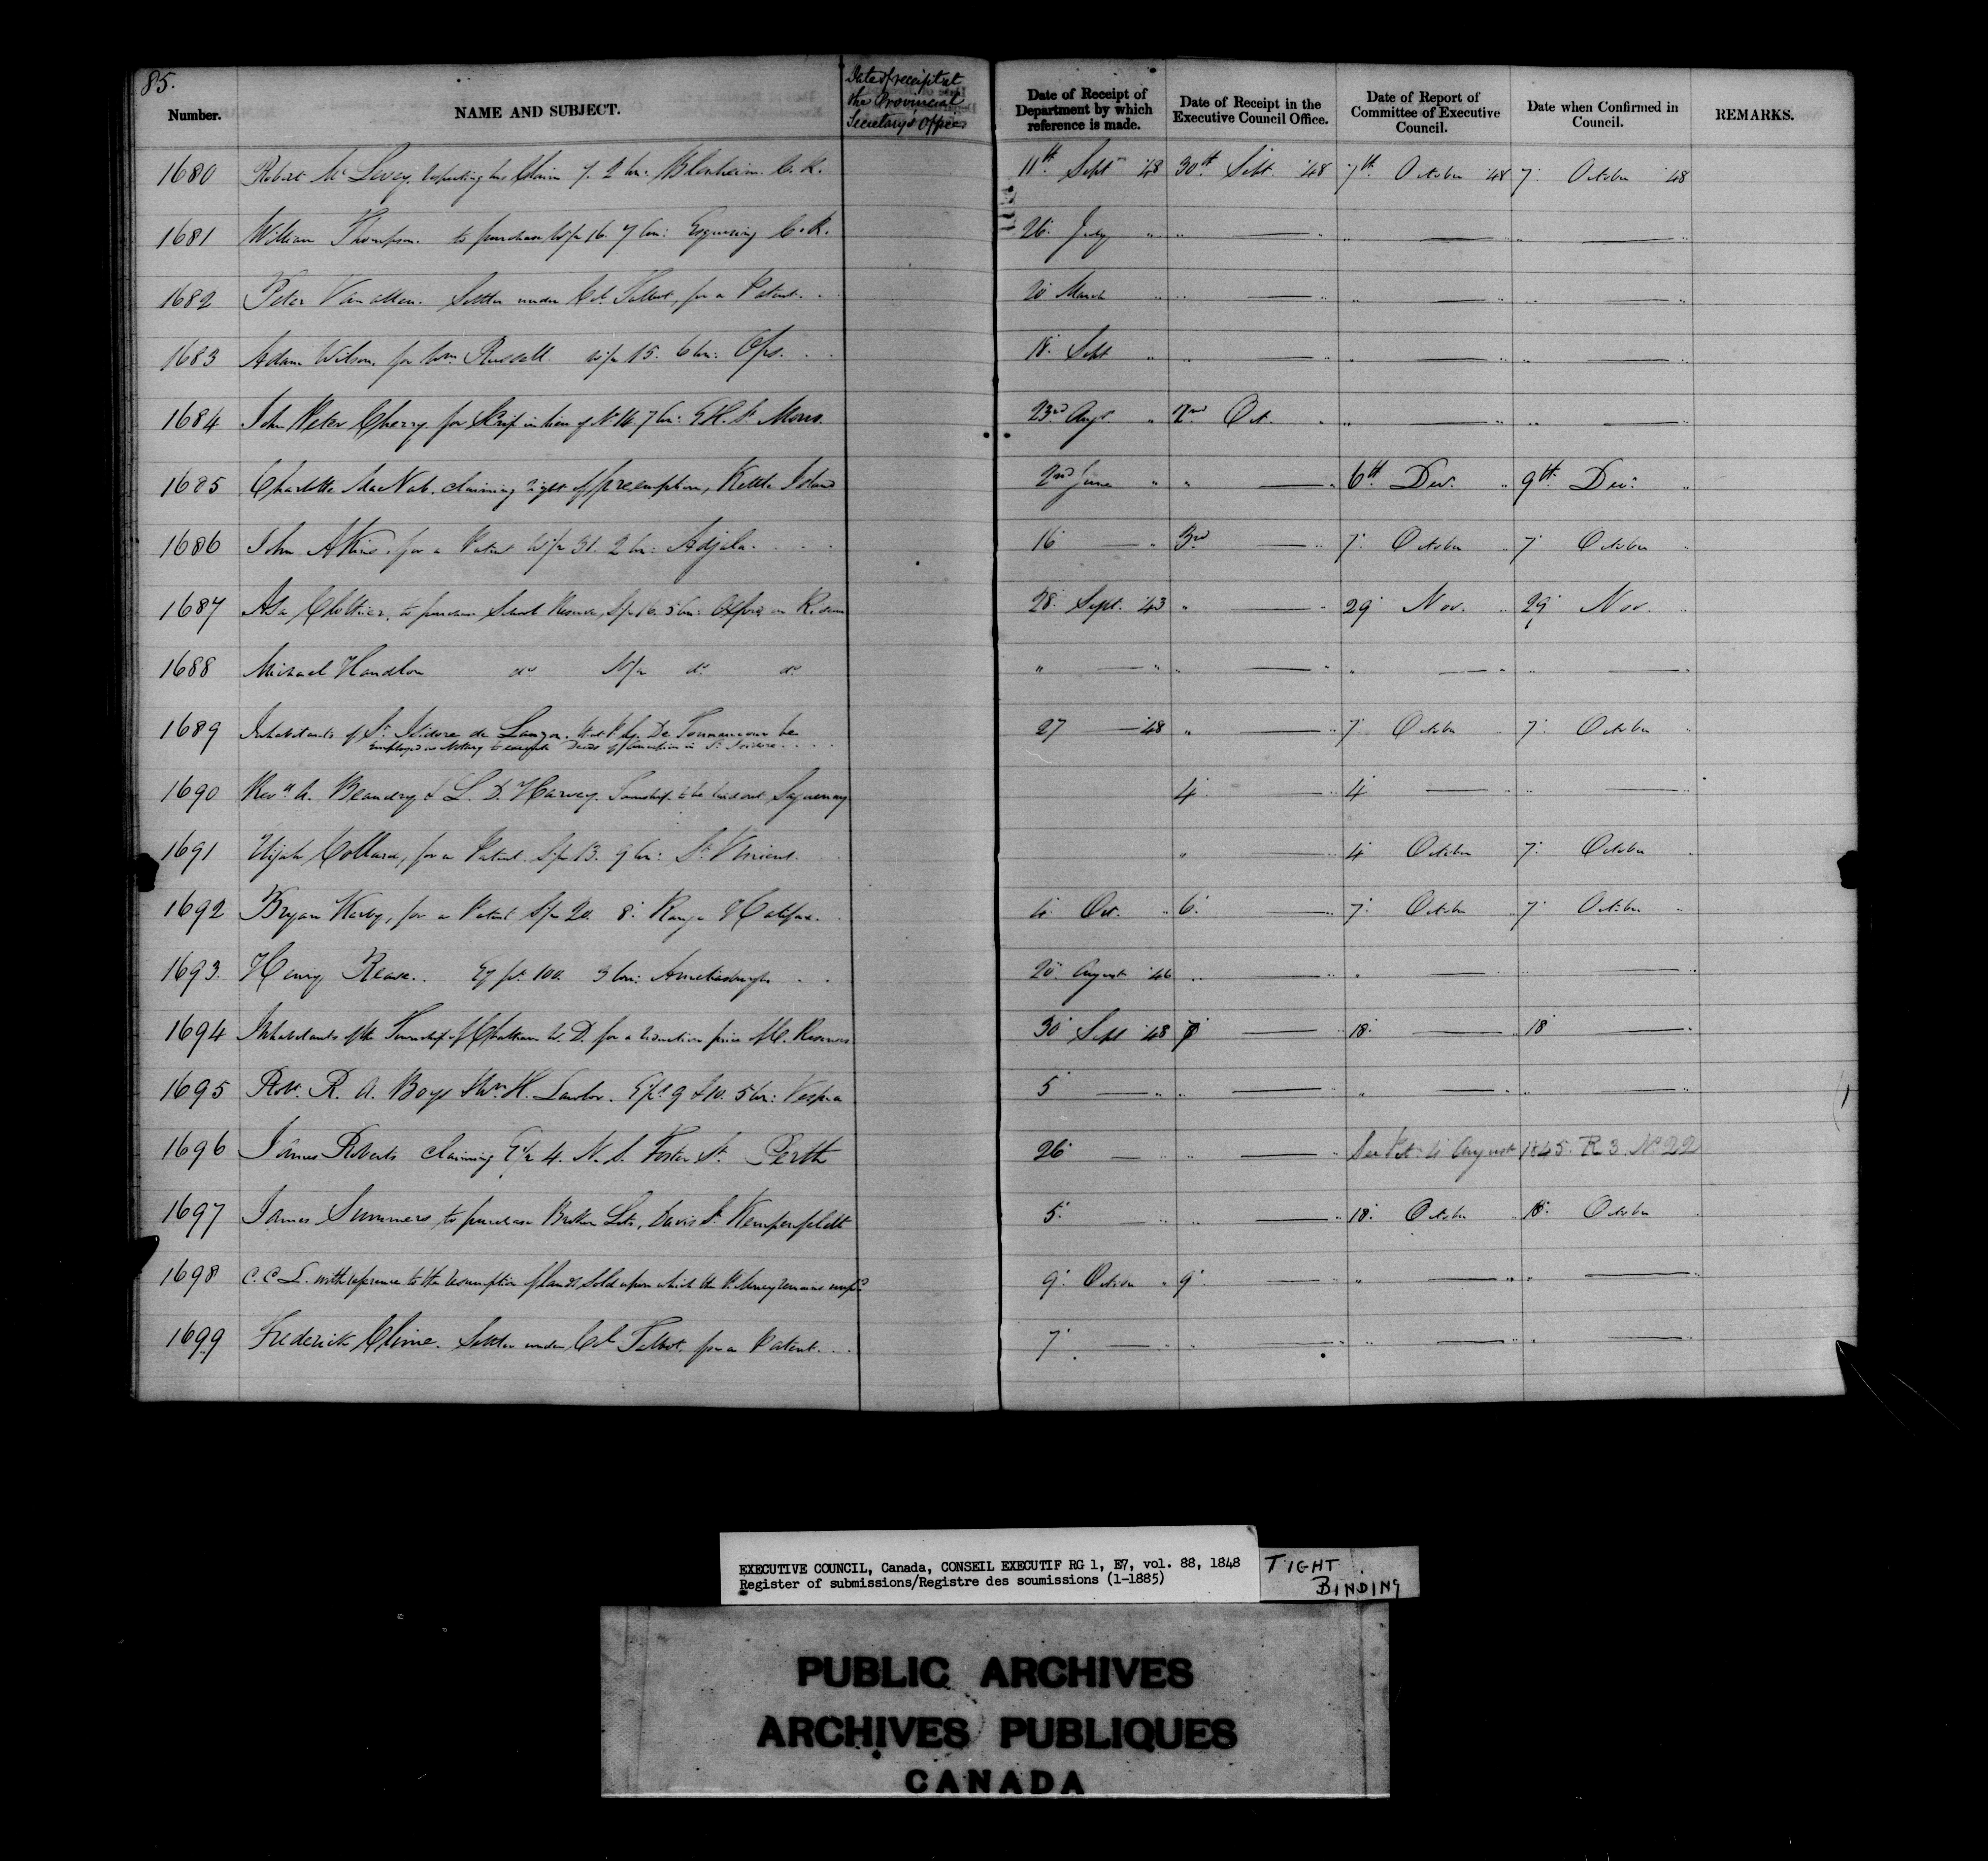 85.
Number.
NAME AND SUBJECT.
Date of receipt at the Provincial Secretary's Office
Date of Receipt of Department by which reference is made.
Date of Receipt in the Executive Council Office.
Date of Report of Committee of Executive Council.
Date when Confirmed in Council.
REMARKS.
1680 Robert McLevey, respecting his Claim 7. 2 Con: Blenheim. C. R. 11th Sept '48 30th Sept. '48 7th October '48 7. October '48
1681 William Thompson. to purchase W½ 16. 7 Con: Esquesing C. R. 26. July " " — " " — " " — "
1682 Peter Vanatten. Settler under Col. Talbot, for a Patent. 20 March " " — " " — " " — "
1683 Adam Wilson, for Wm. Russell 15. 6 Con: Ops. 18. Sept " " — " " — " " — "
1684 John Peter Cherry for Scrip in lieu of No. 14. 7 Con: E.H. St. Mono. 23rd Augt. " 2nd Oct. " " — " " — "
1685 Charlotte MacNab, claiming right of preemption, Kettle Island 2nd June " " — " 6th Dec. " 9th Dec: "
1686 John Atkins, for a Patent W½ 31. 2 Con: Adjala. 16 — " 3rd — " 7. October " 7. October "
1687 Asa Clothier, to purchase School Reserve, S½ 16. 5 Con: Oxford on Rideau 28. Sept. '43 " — " 29 Nov. " 29 Nov. "
1688 Michael Handlon do N½ do do " — " " — " " — " " — "
1689 Inhabitants of St. Isidore de Lauzon. De Tonnancour be
employed as Notary to execute Deeds of Concession in St. Isidore. 27 — '48 " — " 7. October " 7. October "
1690 Revd. A. Beaudry & L. D. Harvey. Township to be laid out Saguenay 4 — " 4 — " " — "
1691 Elijah Collard, for a Patent. S½ 13. 9 Con: St. Vincent. " — " 4 October " 7. October "
1692 Bryan Kerby, for a Patent S½ 20. 8. Range Halifax. 4. Oct. " 6. — " 7. October " 7. October "
1693. Henry Rease. pt. 100. 3 Con: Ameliasburgh 20 August '46 " — " " — " " — "
1694 Inhabitants of the Township of Chatham W. D. for a reduction price of C. Reserves. 30 Sept '48 7 — " 18. — " 18 — "
1695 Robt. R. A. Boys & Wm. H. Lawlor. E pt. 9 & 10. 5 Con: Vespra 5 — " " — " " — " " — "
1696 James Roberts claiming E½ 4. N. S. Foster St. Perth 26 — " " — " See Pet. 4 August 1845. R 3. No. 22
1697 James Summers, to purchase Broken Lots, Davis St. Kempenfeldt 5. — " " — " 18. October " 18. October "
1698 C. C. L. with reference to the resumption of lands sold upon which the P. Money remains unpd. 9. October " 9. — " " — " " — "
1699 Frederick Clime. Settler under Col. Talbot, for a Patent. 7. — " " — " " — " " — "
EXECUTIVE COUNCIL, Canada, CONSEIL EXECUTIF RG 1, E7, vol. 88, 1848
Register of submissions/Registre des soumissions (1-1885)
TIGHT
BINDING
PUBLIC ARCHIVES
ARCHIVES PUBLIQUES
CANADA